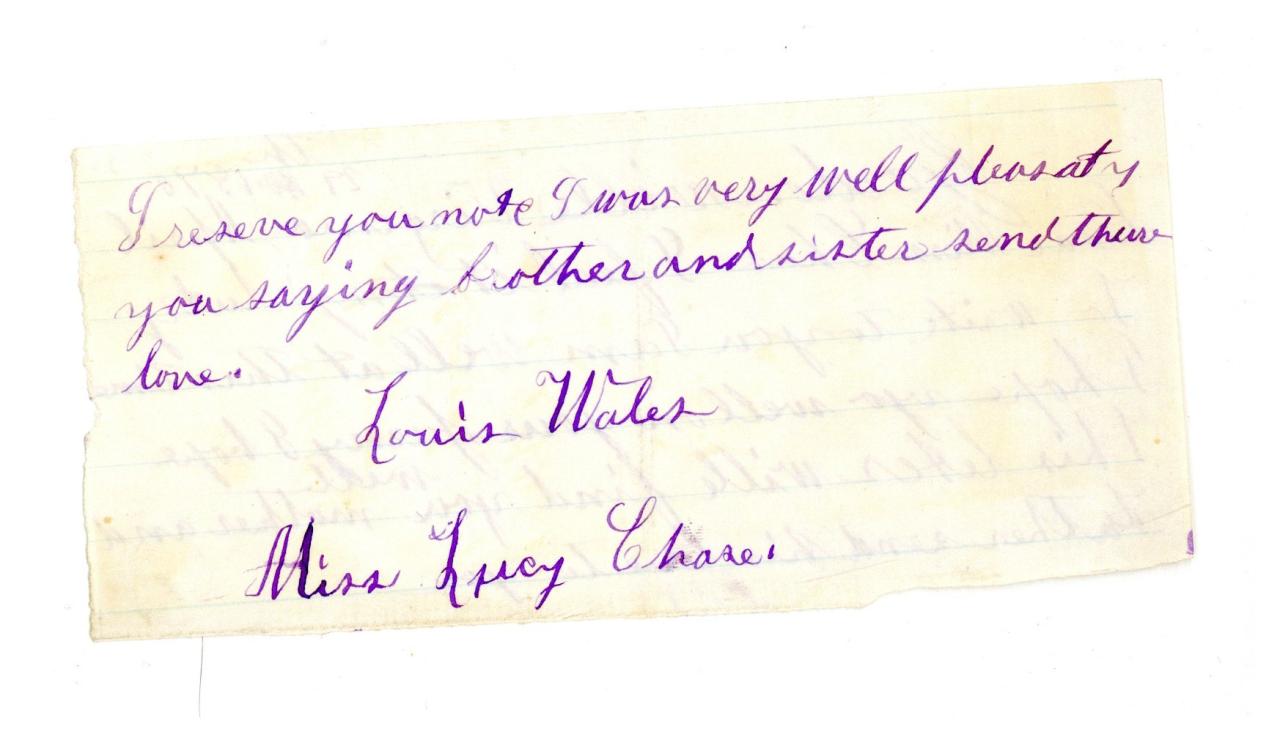 I reseve you note I was very well pleas at y
you saying brother and sister send thure
love.
Louis Wales
Miss Lucy Chase.